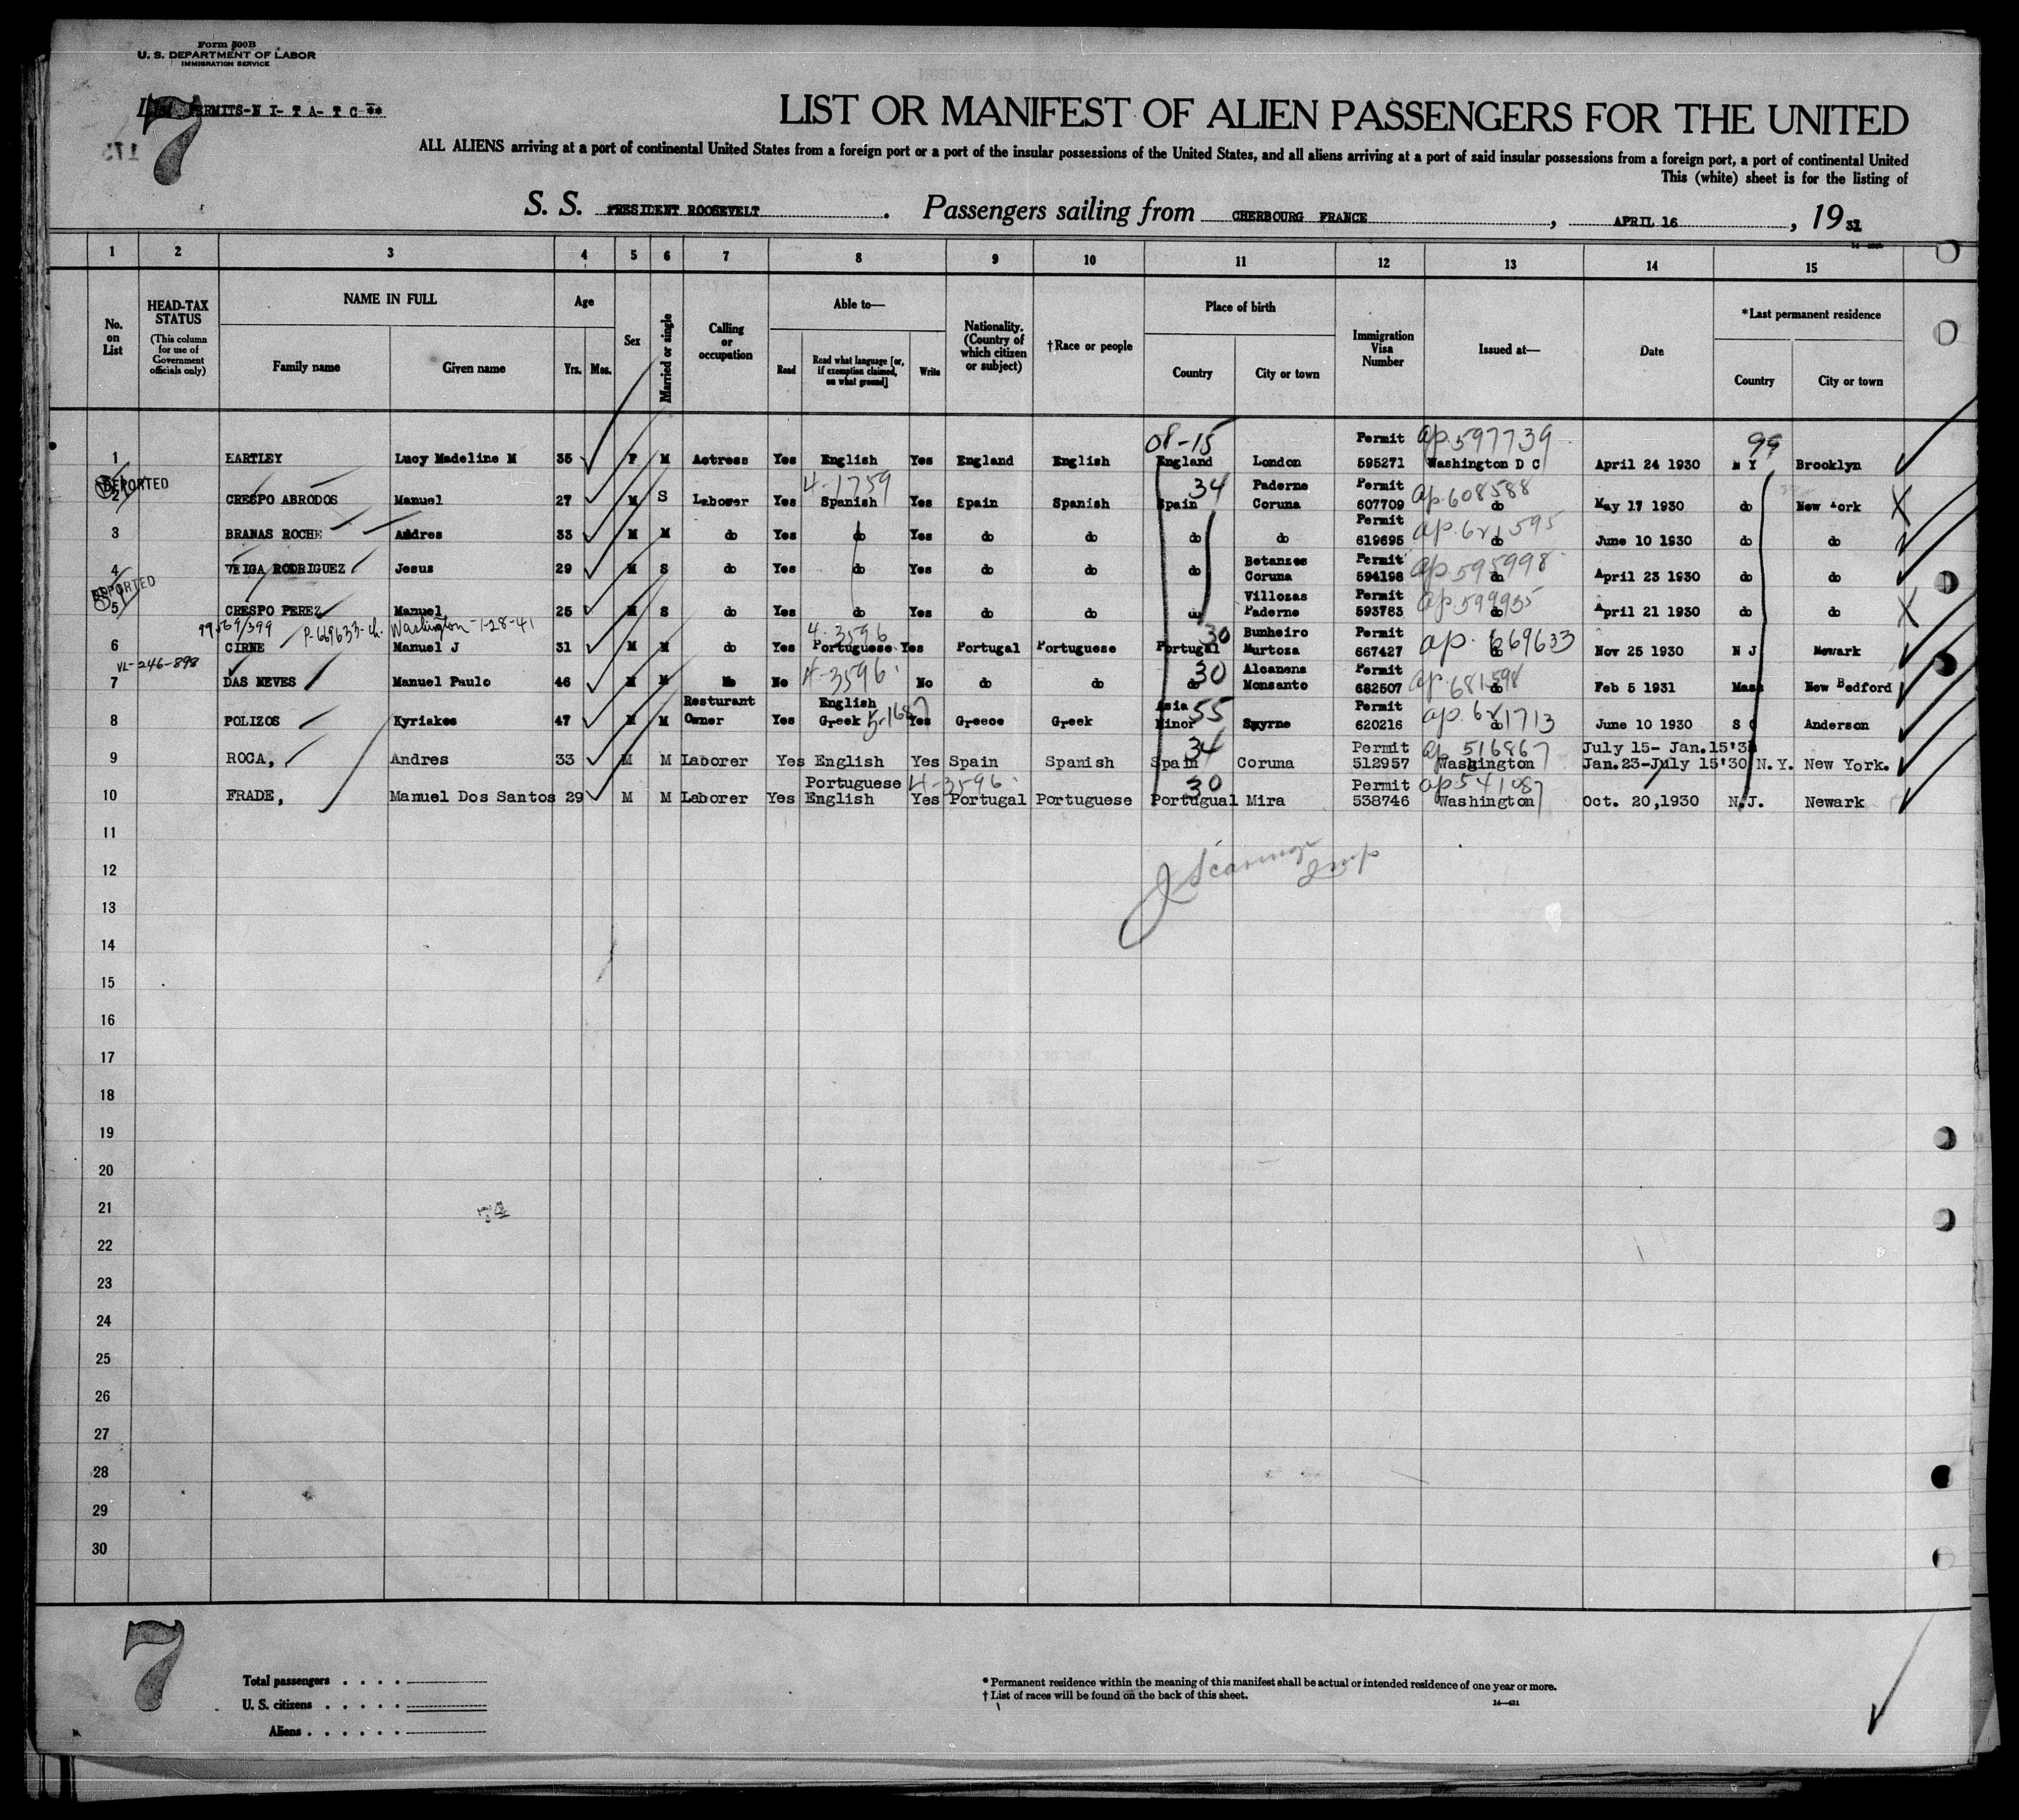 Form 500B
U. S. DEPARTMENT OF LABOR
IMMIGRATION SERVICE
PERMITS-N I- T A- T C **
7
LIST OR MANIFEST OF ALIEN PASSENGERS FOR THE UNITED
ALL ALIENS arriving at a port of continental United States from a foreign port or a port of the insular possessions of the United States, and all aliens arriving at a port of said insular possessions from a foreign port, a port of continental United
This (white) sheet is for the listing of
S. S. PRESIDENT ROOSEVELT. Passengers sailing from CHERBOURG FRANCE, APRIL 16, 1931
1 2 3 4 5 6 7 8 9 10 11 12 13 14 15
No. on List
HEAD-TAX STATUS (This column for use of Government officials only)
NAME IN FULL
Family name Given name
Age
Yrs. Mos.
Sex
Married or single
Calling or occupation
Able to—
Read Read what language [or, if exemption claimed, on what ground] Write
Nationality. (Country of which citizen or subject)
†Race or people
Place of birth
Country City or town
Immigration Visa Number
Issued at—
Date
*Last permanent residence
Country City or town
08-15 Permit ap. 597739 99
1 HARTLEY Lucy Madeline M 35 F M Actress Yes English Yes England English England London 595271 Washington D C April 24 1930 N Y Brooklyn
DEPORTED 4-1759 34 Paderne Permit ap. 608588
2 CRESPO ABRODOS Manuel 27 M S Laborer Yes Spanish Yes Spain Spanish Spain Coruna 607709 do May 17 1930 do New York
Permit ap. 621595
3 BRANAS ROCHE Andres 33 M M do Yes do Yes do do do do 619695 do June 10 1930 do do
Betanzos Permit ap. 595998
4 VEIGA RODRIGUEZ Jesus 29 M S do Yes do Yes do do do Coruna 594198 do April 23 1930 do do
DEPORTED Villozas Permit ap. 599935
5 CRESPO PEREZ Manuel 25 M S do Yes do Yes do do do Paderne 593783 do April 21 1930 do do
99569/399 P-669633-ch. Washington -1-28-41 4-3596 30 Bunheiro Permit ap. 669633
6 CIRNE Manuel J 31 M M do Yes Portuguese Yes Portugal Portuguese Portugal Murtoza 667427 do Nov 25 1930 N J Newark
VL-246-898 4-3596 30 Alcanena Permit ap. 681598
7 DAS NEVES Manuel Paulo 46 M M No No do do do Monsanto 682507 do Feb 5 1931 Mass New Bedford
Resturant English 5-1687 Asia 55 Permit ap. 621713
8 POLIZOS Kyriakos 47 M M Owner Yes Greek Yes Greece Greek Minor Smyrne 620216 do June 10 1930 S C Anderson
34 Permit ap 516867 July 15- Jan.15'3
9 ROCA, Andres 33 M M Laborer Yes English Yes Spain Spanish Spain Coruna 512957 Washington Jan.23-July 15'30 N.Y. New York.
Portuguese 4-3596 30 Permit ap 541087
10 FRADE, Manuel Dos Santos 29 M M Laborer Yes English Yes Portugal Portuguese Portugual Mira 538746 Washington Oct. 20,1930 N.J. Newark
11
12
Insp
13
14
15
16
17
18
19
20
21
22
23
24
25
26
27
28
29
30
7
Total passengers . . . .
U. S. citizens . . . . .
Aliens . . . . . .
* Permanent residence within the meaning of this manifest shall be actual or intended residence of one year or more.
† List of races will be found on the back of this sheet.
14—431